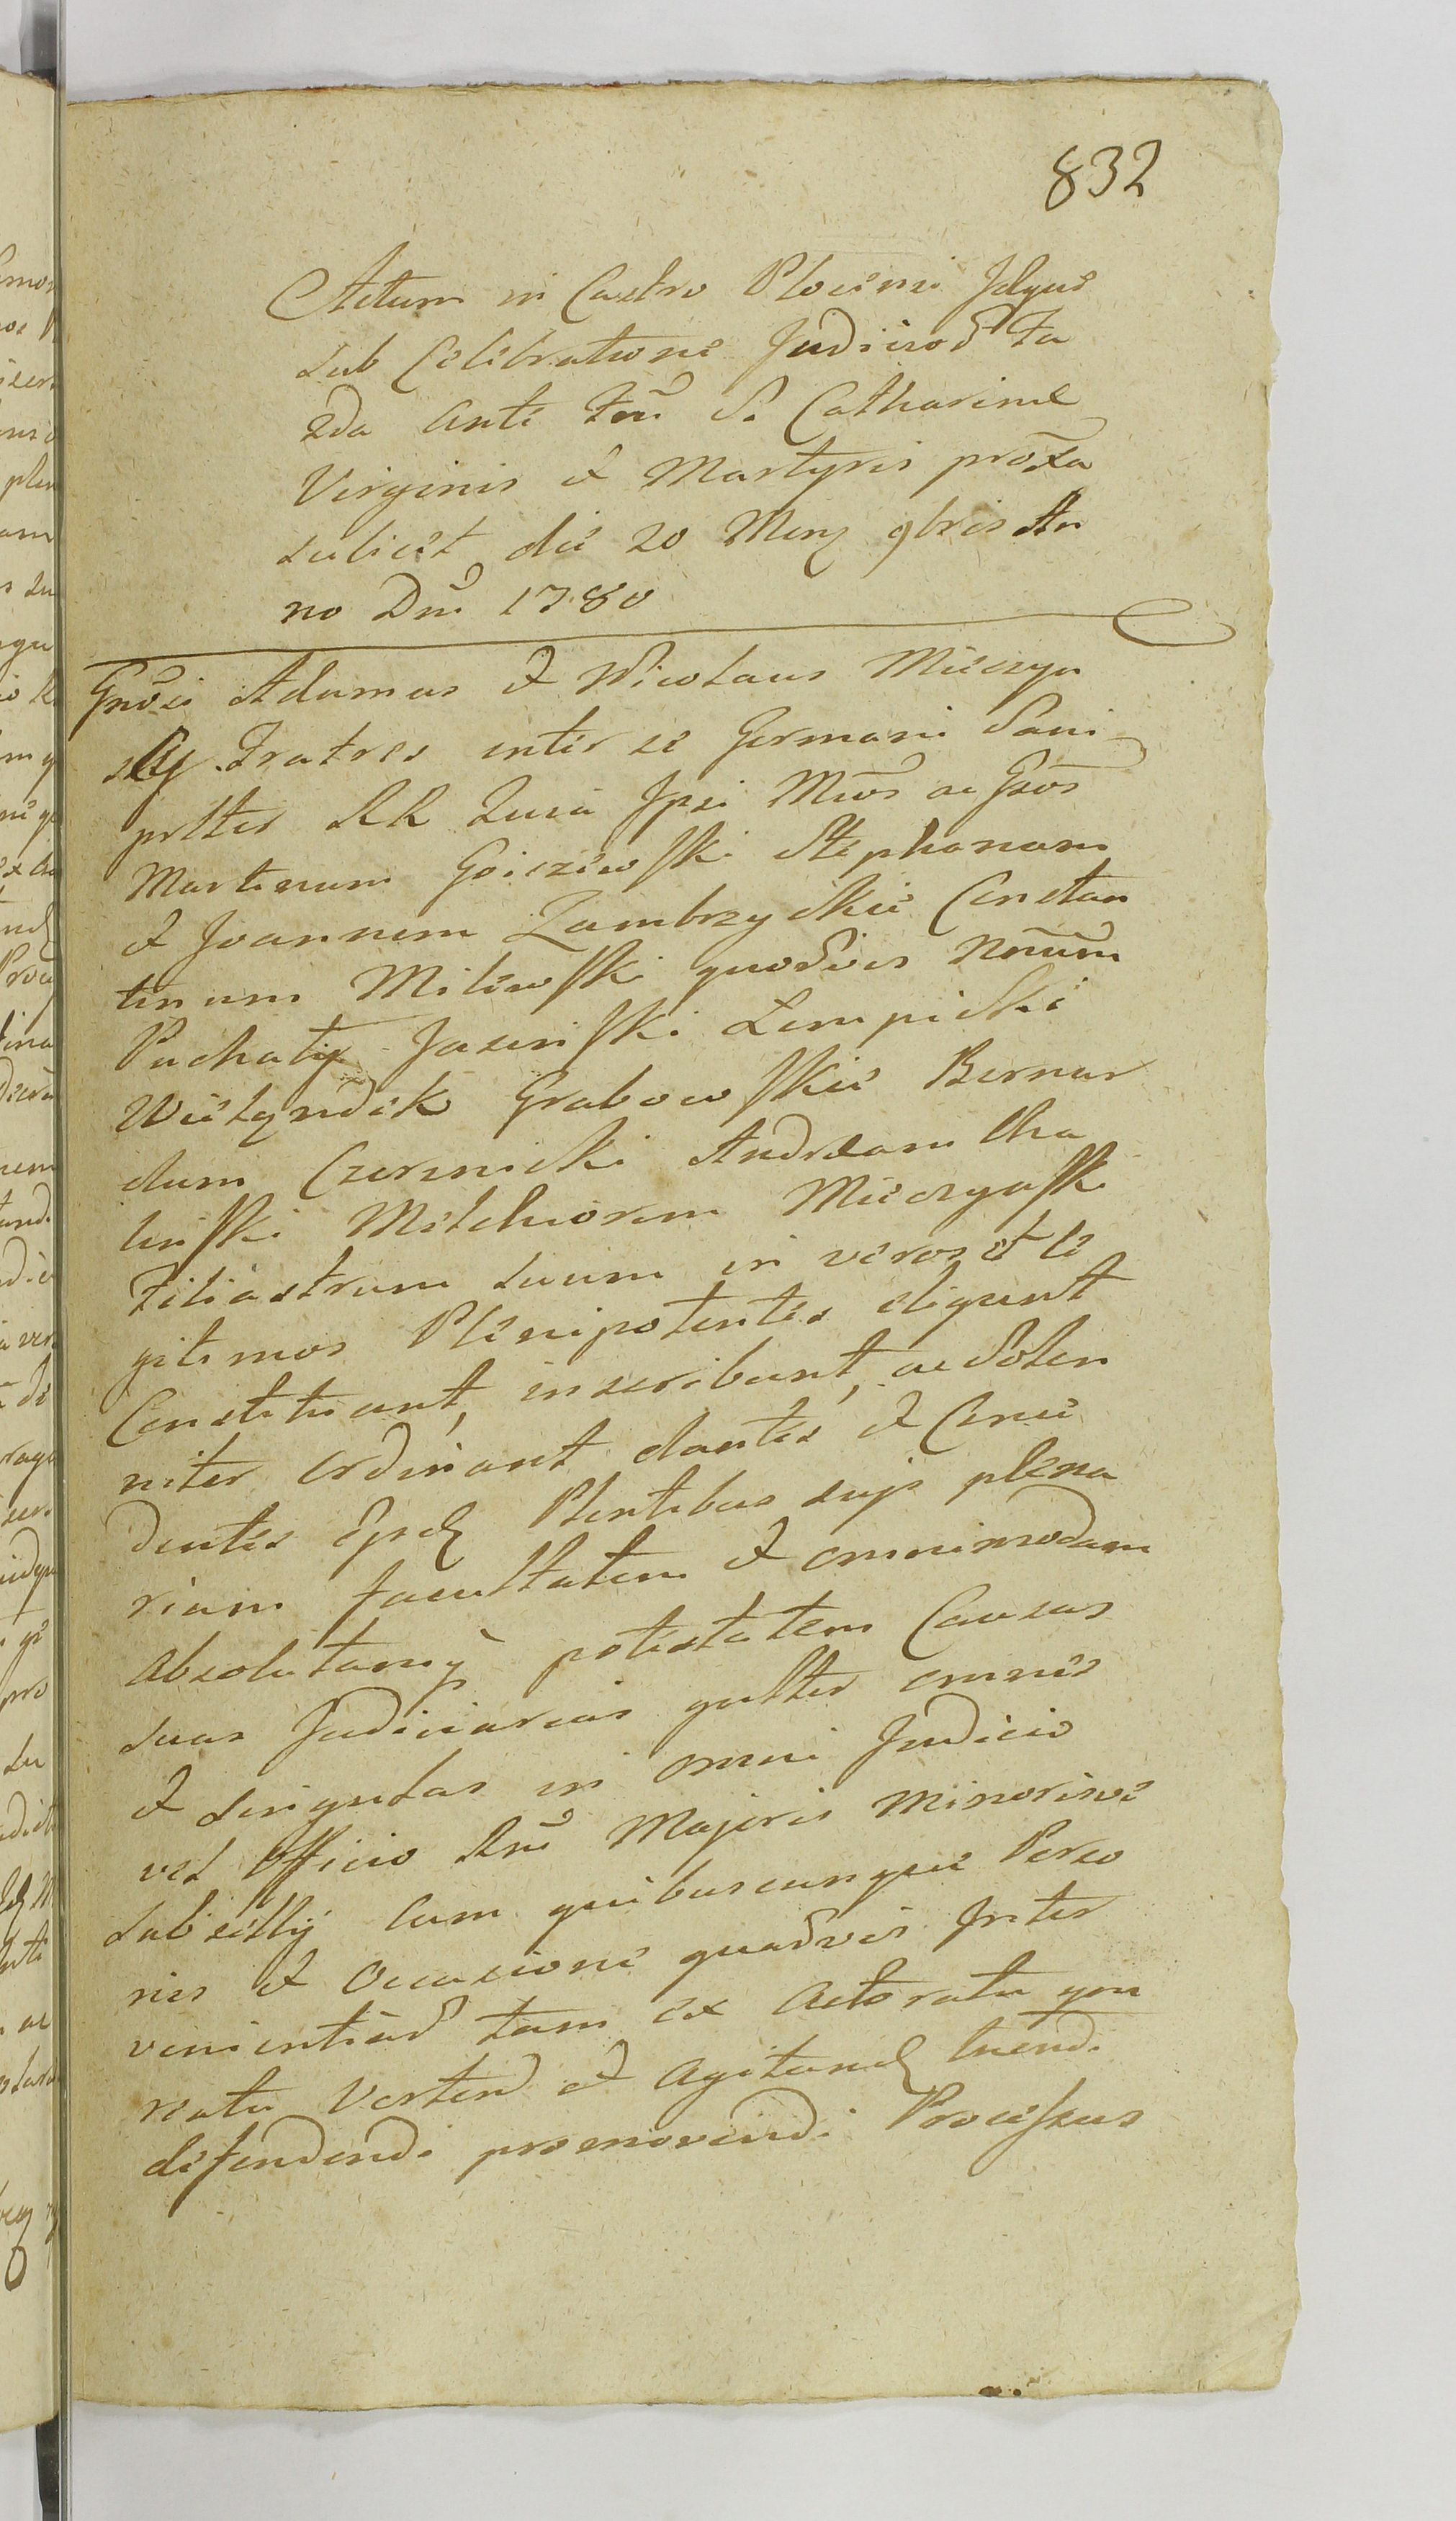 832
Actum in Castro Plocensi Idque
sub Celebratione Judicior Fa
2da Ante Fm S. Catharinæ
Virginis & Martyris proxa
scilicet die 20 Mens 9bris An
no Dni 1780
Gnosi Adamus & Nicolaus Mieczyn
scy Fratres inter se Germani Sani
prltes RR Quia Ipsi Mcos ac Gsos
Martinum Goiszewski Stephanum
& Joannem Zambrzyckie Constan
tinum Milewski quodvis Noium
Puchaty Jasinski Lempicki
Grabowskie Bernar
dum Czerznicki Andream Cha
linski Melchiorem Mieczynski
Filiastrum suum in veros et le
gitimos Plenipotentes eligunt
Constituunt, inscribunt, ac Solen
niter Ordinant dantes & Conce
dentes Ipsis Plentibus suis plena
riam facultatem & omnimodam
absolutamq potestatem Causas
suas Judiciarias gnlter omnes
& singulas in omni Judicio
vel Officio Rni Majoris Minorisve
Subsellij Cum quibuscunque Perso
nis & Occasione quadvis Inter
venientiad tam ex Actoratu qua
reatu Vertend & Agitand tuendi
defendendi promovendi Processus